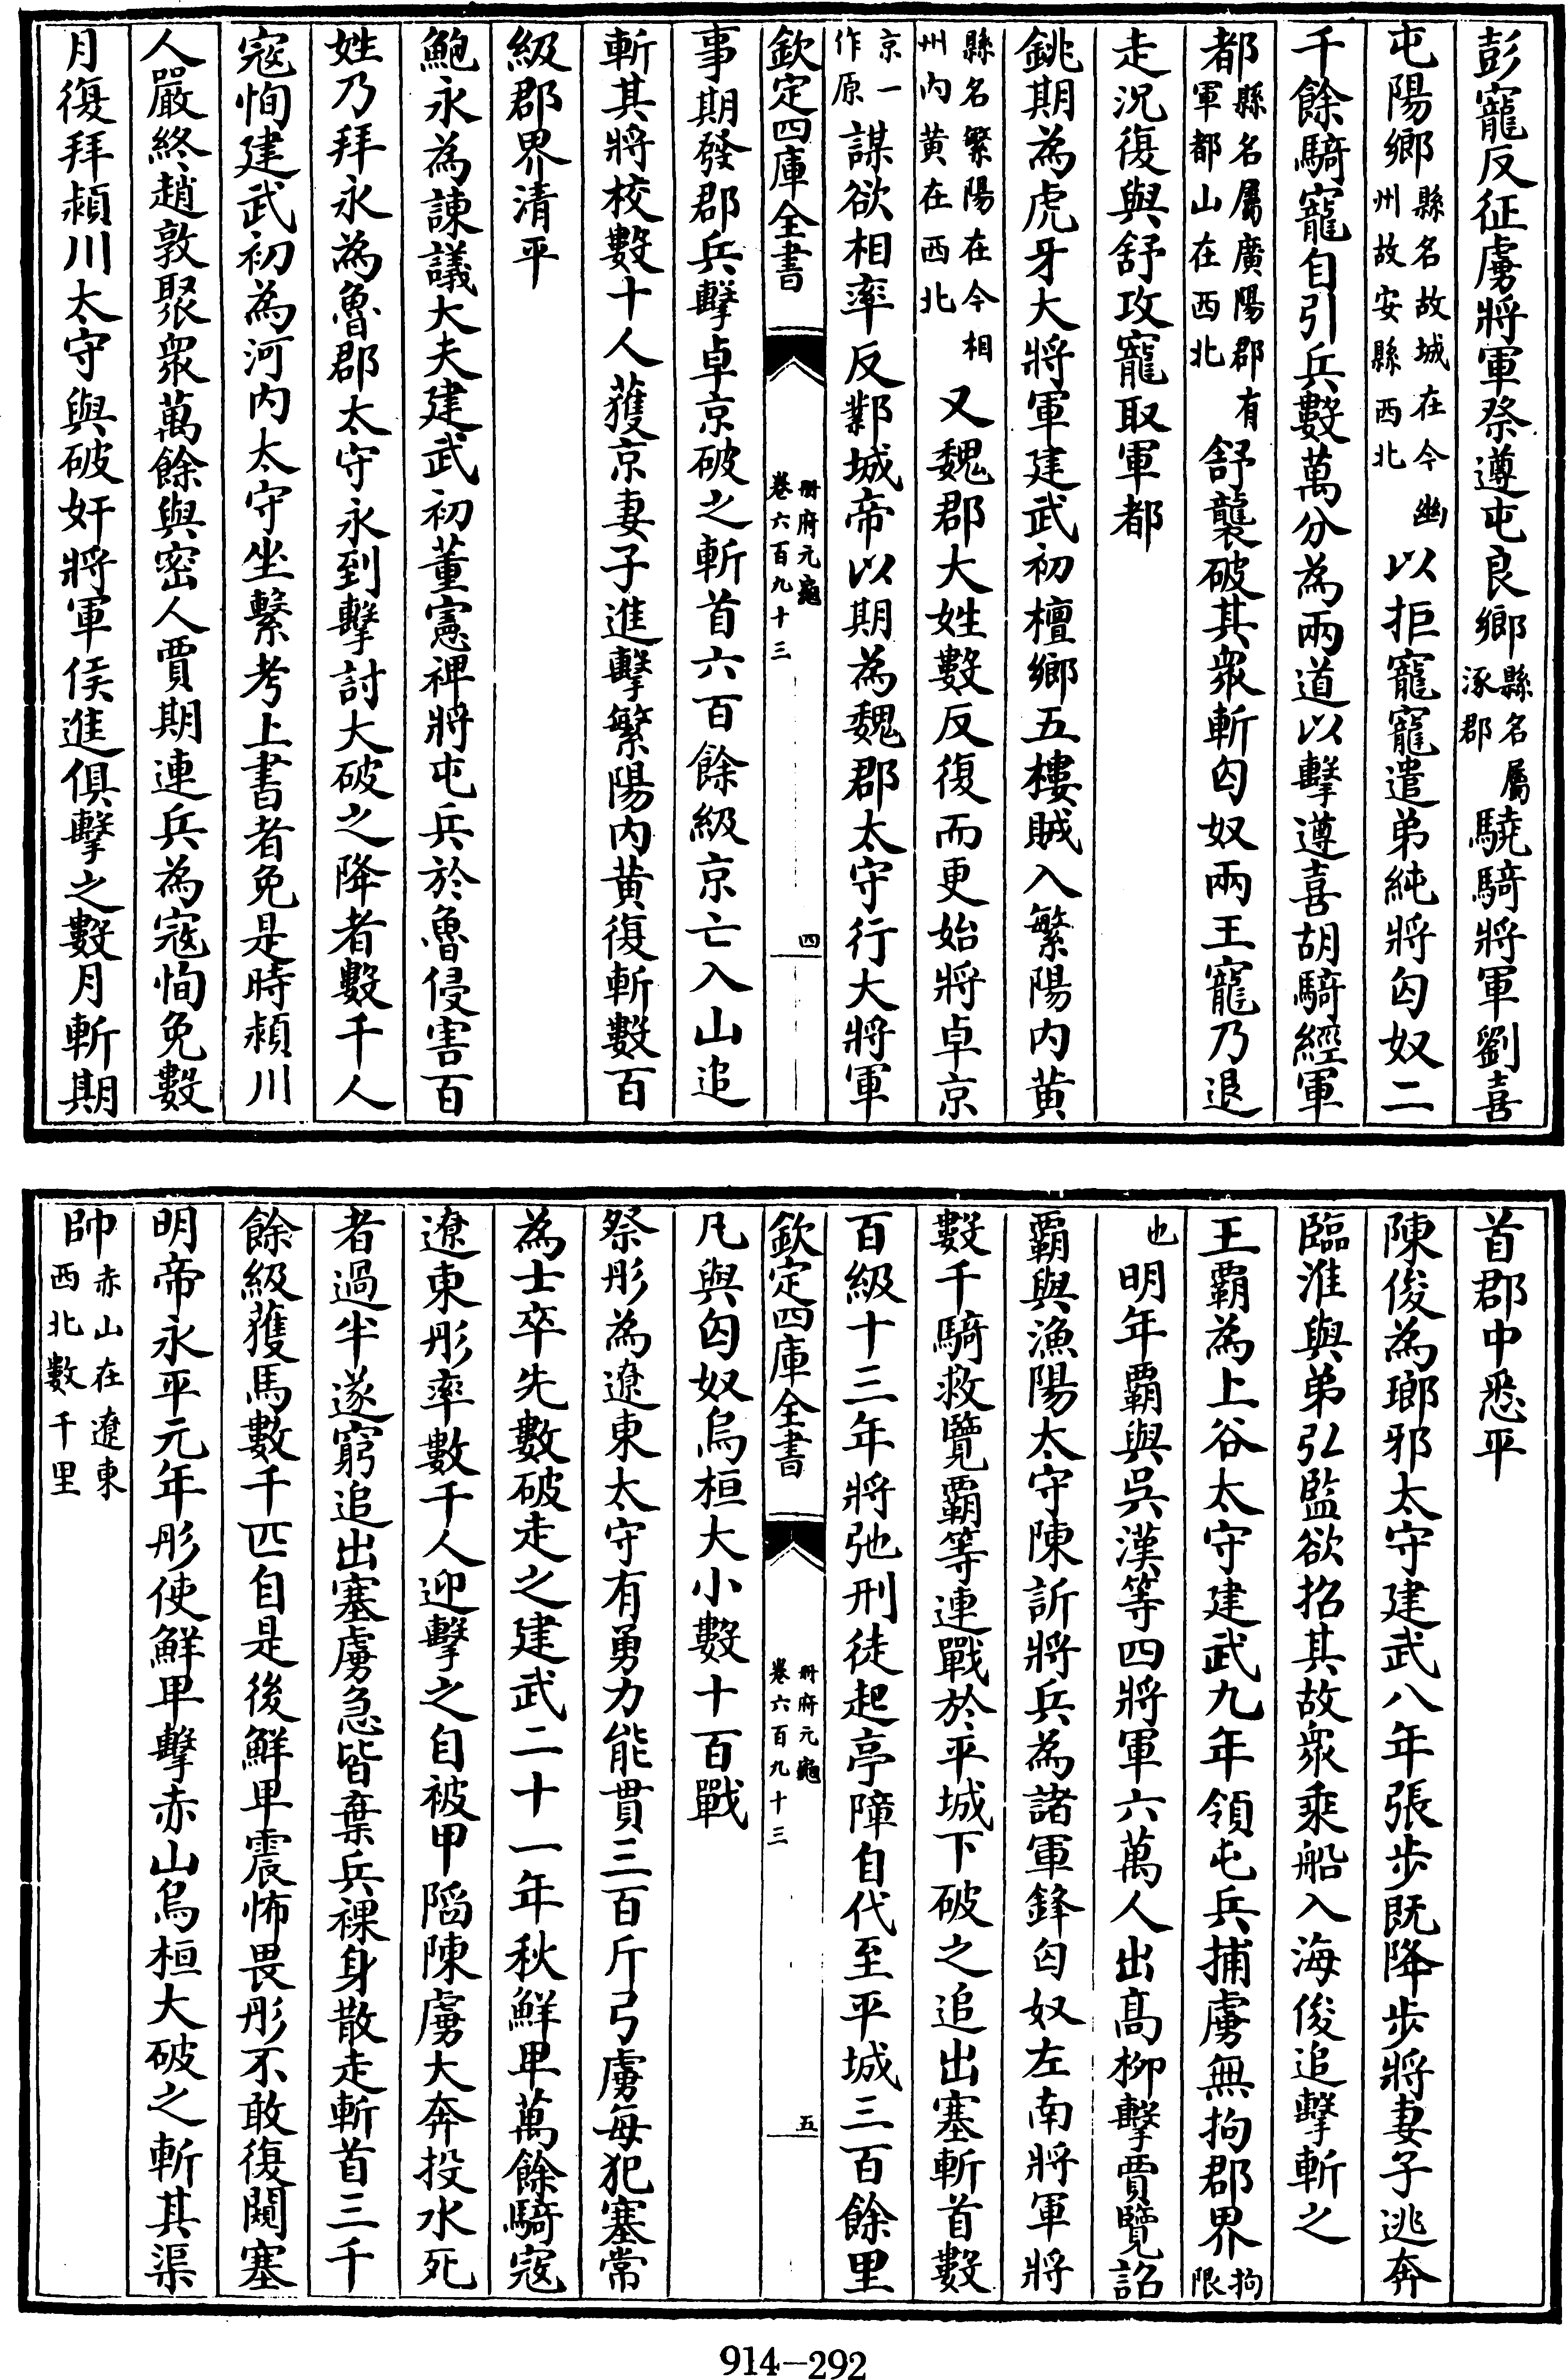 彭寵反征虜將軍祭遵屯良鄉縣名屬涿郡驍騎將軍劉喜
屯陽鄉縣名故城在今幽州故安縣西北以拒寵寵遣弟純將匈奴二
千餘騎寵自引兵數萬分為兩道以擊遵喜胡騎經軍
都縣名屬廣陽郡有軍都山在西北舒襲破其衆斬匈奴兩王寵乃退
走況復與舒攻寵取軍都
銚期為虎牙大將軍建武初檀鄉五樓賊入繁陽内黄
縣名繁陽在今相州内黄在西北又魏郡大姓數反復而更始將卓京
京一作原謀欲相率反鄴城帝以期為魏郡太守行大將軍
欽定四庫全書 冊府元龜卷六百九十三 四
事期發郡兵擊卓京破之斬首六百餘級京亡入山追
斬其將校數十人獲京妻子進擊繁陽内黄復斬數百
級郡界清平
鮑永為諫議大夫建武初董憲禆將屯兵於魯侵害百
姓乃拜永為魯郡太守永到擊討大破之降者數千人
寇恂建武初為河内太守坐繫考上書者免是時潁川
人嚴終趙敦聚衆萬餘與密人賈期連兵為寇恂免數
月復拜潁川太守與破奸將軍侯進俱擊之數月斬期
首郡中悉平
陳俊為瑯邪太守建武八年張步既降步將妻子逃奔
臨淮與弟弘監欲招其故衆乘船入海俊追擊斬之
王霸為上谷太守建武九年領屯兵捕虜無拘郡界拘限
也明年霸與吳漢等四將軍六萬人出髙柳擊賈覽詔
霸與漁陽太守陳訢將兵為諸軍鋒匈奴左南將軍將
數千騎救覽霸等連戰於平城下破之追出塞斬首數
百級十三年將弛刑徒起亭障自代至平城三百餘里
欽定四庫全書 冊府元龜卷六百九十三 五
凡與匈奴烏桓大小數十百戰
祭肜為遼東太守有勇力能貫三百斤弓虜每犯塞常
為士卒先數破走之建武二十一年秋鮮卑萬餘騎寇
遼東肜率數千人迎擊之自被甲陷陳虜大奔投水死
者過半遂窮追出塞虜急皆棄兵裸身散走斬首三千
餘級獲馬數千匹自是後鮮卑震怖畏肜不敢復闚塞
明帝永平元年肜使鮮卑擊赤山烏桓大破之斬其渠
帥赤山在遼東西北數千里
914-292